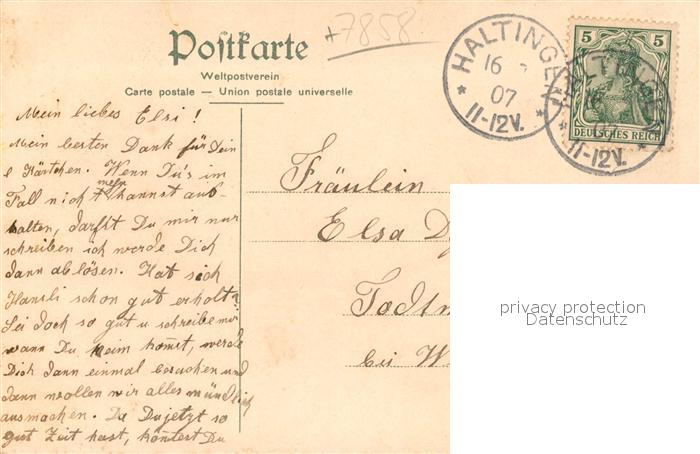 +7858.
Postkarte
Weltpostverein
Carte postale — Union postale universelle
HALTINGEN
16
07
11-12V.
5 5
DEUTSCHES REICH
HALTINGEN
16
11-12V.
Mein liebes Elsi!
Mein besten Dank für Dein
l Kärtchen. Wenn Du's im
Fall nicht mehr kannst aus-
halten, darfst Du mir nur
schreiben ich werde Dich
dann ablösen. Hat sich
Hansli schon gut erholt?
Sei doch so gut u schreibe mir
wann Du heim kom̄st, werde
Dich dann einmal besuchen und
dann wollen wir alles mündlich
ausmachen. Da Du jetzt so
gut Zeit hast, könntest Du
Fräulein
Elsa D
Todtm
bei W
privacy protection
Datenschutz